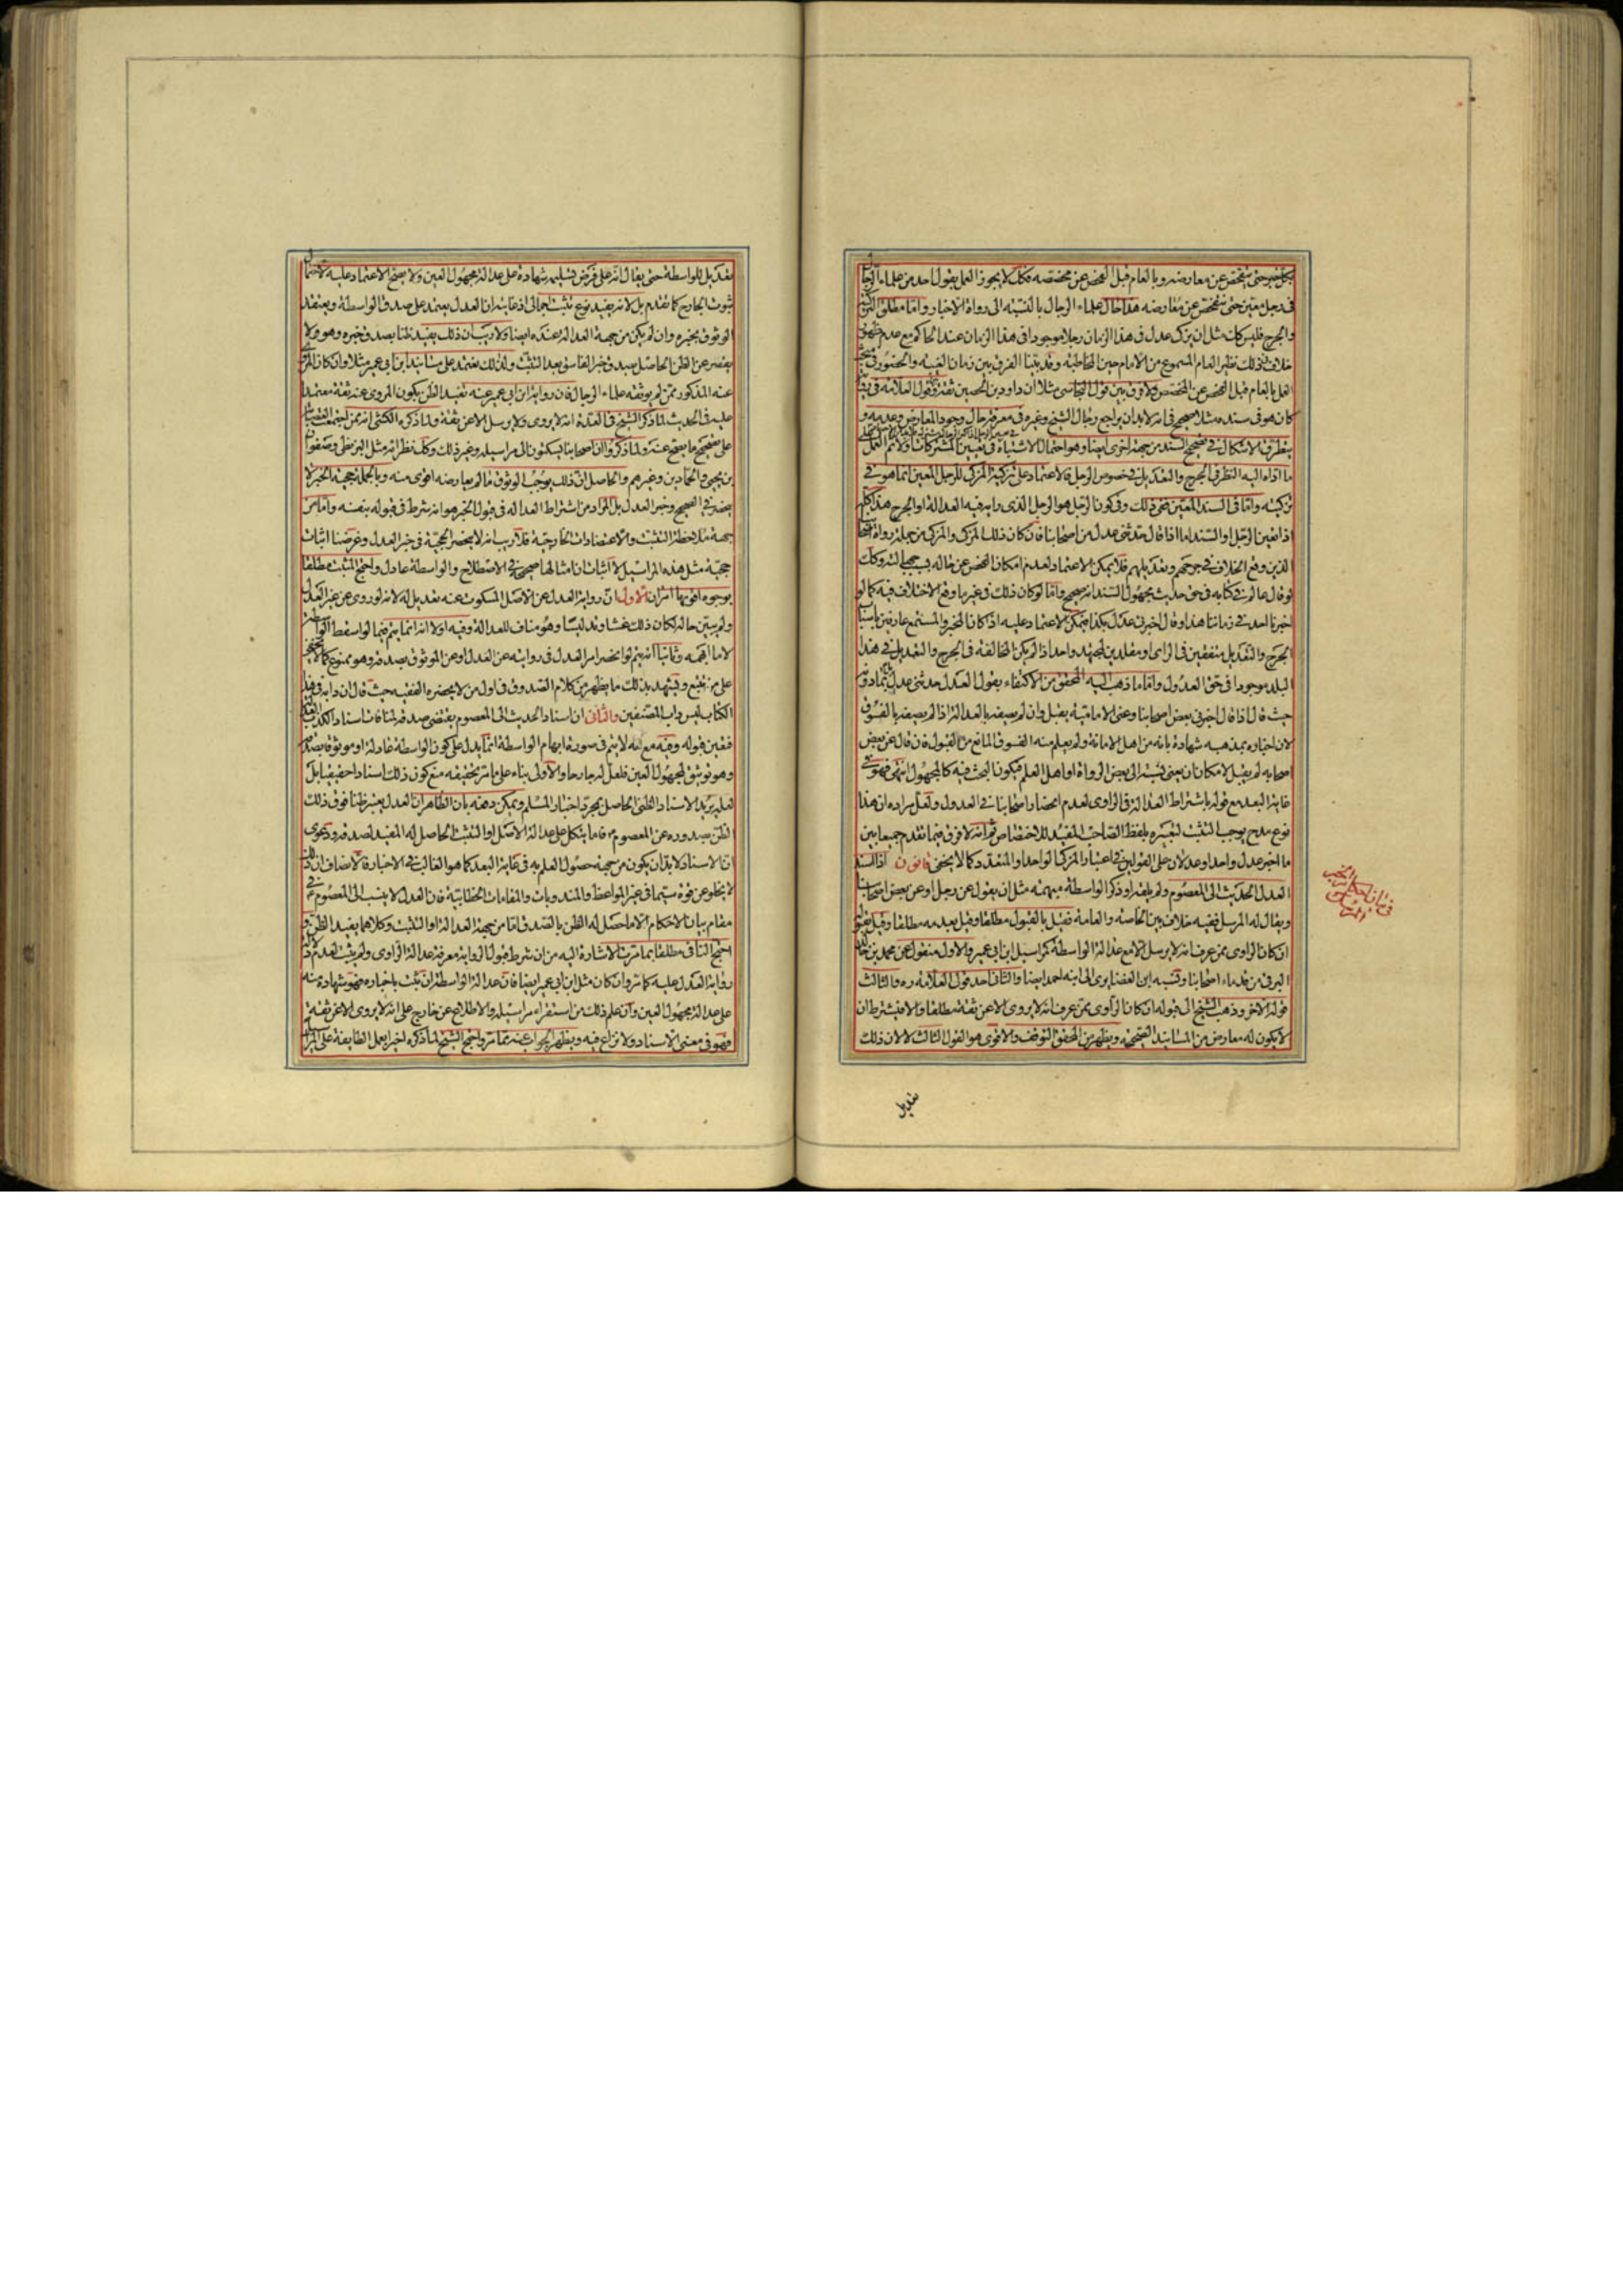 بكل خبر حتى يتفحص عن معارضه وبالعام قبل الفحص عن مخصصه فكك لا يجوز العمل بقول احد من علماء الرجال
فى رجل معين حتى يتفحص عن معارضه هذا حال علماء الرجال بالنسبة الى رواة الاخبار واما مطلق التزكية
والجرح فليس كك مثل ان يزكى عدل فى هذا الزمان رجلا موجودا فى هذا الزمان عند الحاكم مع عدم ظهور
خلاف فى ذلك نظير العام المسموع من الامام حين المخاطبة وقد بينا الفرق بين زمان الغيبة والحضور فى
العمل بالعام قبل الفحص عن المخصص ولا فرق بين قول النجاشى مثلا ان داود بن الحصين ثقة وقول العلامة فى
كان هو فى سنده مثلا صحيح فى انه لابد ان يراجع رجال الشيخ وغيره فى معرفة حال وجود المعارض وعدمه و
يتطرق الاشكال فى صحيح السند من جهة اخرى ايضا وهو احتمال الاشتباه فى تعيين المشتركات
ما اداه اليه النظر فى الجرح والتعديل فى خصوص الرجل فالاعتماد على تزكية المزكى للرجل المعين انما هو فى
تزكيته واما فى السند المعين ففى ذلك وفى كون الرجل هو الرجل الذى راى فيه العدالة او الجرح هذا كله
اذا تعين الرجل او السند اما اذا قال حدثنى عدل من اصحابنا فان كان ذلك المزكى والمزكى من جملة رواة اصحابنا
الذين وقع الخلاف فى جرحهم وتعديلهم فلا يمكن الاعتماد لعدم امكان الفحص عن حاله بسبب جهالته وكك
لو قال عالم فى كتابه فى حق حديث مجهول السند انه صحيح واما لو كان ذلك فى غير ما وقع الاختلاف فيه كما لو
اخبرنا احد فى زماننا هذا وقال اخبرنى عدل بكذا فيمكن الاعتماد عليه اذا كان المخبر والمستمع عارفين باسباب
الجرح والتعديل متفقين فى الراى او مقلدين لمجتهد واحد اذا لم يكن المخالفة فى الجرح والتعديل فى هذا
البلد موجودا فى حق العدول واما ما ذهب اليه المحقق من الاكتفاء بقول العدل حدثنى عدل
حيث قال اذا قال اخبرنى بعض اصحابنا وعنى الامامية يقبل وان لم يصفه بالعدالة اذا لم يصفه بالفسوق
لان اخباره بمذهبه شهادة بانه من اهل الامانة ولم يعلم منه الفسوق المانع من القبول فان قال عن بعض
اصحابه لم يقبل لامكان ان يعنى نسبته الى بعض الرواة او اهل العلم فيكون البحث فيه كالمجهول انتهى فهو فى
غاية البعد مع قوله باشتراط العدالة فى الراوى لعدم انحصار اصحابنا فى العدول ولعل مراده ان هذا
نوع مدح يوجب التثبت لتعبيره بلفظ الصاحب المفيد للاختصاص ثم انه لا فرق فيما تقدم جميعا بين
ما اخبر عدل واحد او عدلان على القولين فى اعتبار المزكى الواحد والمتعدد كما لا يخفى قانون اذا اسند
العدل الحديث الى المعصوم ولم يلقه او ذكر الواسطة مبهمة مثل ان يقول عن رجل او عن بعض اصحابنا
ويقال له المرسل ففيه خلاف بين الخاصة والعامة فقيل بالقبول مطلقا وقيل بعدمه مطلقا وقيل بقبوله
ان كان الراوى ممن عرف انه لا يرسل الا مع عدالة الواسطة كمراسيل ابن ابى عمير والاول منقول عن محمد بن خالد
البرقى من قدماء اصحابنا ونسبه ابن الغضايرى الى ابنه احمد ايضا والثانى احد قولى العلامة ره والثالث
قوله الاخر وذهب الشيخ الى قبوله ان كان الراوى ممن عرف انه لا يروى الا عن ثقة مطلقا والا فيشترط ان
لا يكون له معارض من المسانيد الصحيحة ويظهر من المحقق التوقف والاقوى هو القول الثالث لا لان ذلك
تعديل
تعديل للواسطة حتى يقال انه على فرض تسليمه شهادة على عدالة مجهول العين ولا يصح الاعتماد عليه لاحتمال
ثبوت الجارح كما تقدم بل لانه يفيد نوع تثبت اجمالى اذ غايته ان العدل يعتمد على صدق الواسطة ويعتقد
الوثوق بخبره وان لم يكن من جهة العدالة عنده ايضا ولا ريب ان ذلك يفيد ظنا بصدق خبره وهو لا
يقصر عن الظن الحاصل بصدق خبر الفاسق بعد التثبت ولذلك نعتمد على مسانيد ابن ابى عمير مثلا وان كان المروى
عنه المذكور ممن لم يوثقه علماء الرجال فان رواية ابن ابى عمير عنه تفيد الظن بكون المروى عنه ثقة معتمدا
عليه فى الحديث لما ذكر الشيخ فى العدة انه لا يروى ولا يرسل الا عن ثقة ولما ذكره الكشى انه ممن اجمعت العصابة
على تصحيح ما يصح عنه ولما ذكروا ان اصحابنا يسكنون الى مراسيله وغير ذلك وكك نظرائه مثل البزنطى وصفوان
بن يحيى والحمادين وغيرهم والحاصل ان ذلك يوجب الوثوق ما لم يعارضه اقوى منه وبالجملة حجية الخبر لا
ينحصر فى الصحيح وخبر العدل بل المراد من اشتراط العدالة فى قبول الخبر هو انه شرط فى قبوله بنفسه واما من
جهة ملاحظة التثبت والاعتضادات الخارجية فلا ريب انه لا ينحصر الحجية فى خبر العدل وغرضنا اثبات
حجية مثل هذه المراسيل لا اثبات ان امثالها صحيح فى الاصطلاح والواسطة عادل واحتج المثبت مطلقا
بوجوه اقويها امران الاول ان رواية العدل عن الاصل المسكوت عنه تعديل له لانه لو روى عن غير العدل
ولم يبين حاله لكان ذلك غشا وتدليسا وهو مناف للعدالة وفيه اولا انه انما يتم فيما لو اسقط الواسطة
لا ما ابهمه وثانيا انه يتم لو انحصر امر العدل فى روايته عن العدل او عن الموثوق بصدقه وهو ممنوع كما لا يخفى
على من تتبع ويشهد بذلك ما يظهر من كلام الصدوق فى اول من لا يحضره الفقيه حيث قال ان دابه فى هذا
الكتاب ليس داب المصنفين والثانى ان اسناد الحديث الى المعصوم يقتضى صدقه لمنافات اسناد الكذب العدالة
فتعين قبوله وفيه مع انه لا يتم فى صورة ابهام الواسطة انما يدل على كون الواسطة عادلة او موثوقا بصدقه
وهو توثيق لمجهول العين فلعل له جارحا والاولى بناء على ما مر تحقيقه منع كون ذلك اسنادا حقيقيا بل
لعله يريد الاسناد الظنى الحاصل بمجرد اخبار المسلم ويمكن دفعه بان الظاهر ان العدل يعتبر ظنا فوق ذلك
الظن بصدوره عن المعصوم ع فاما يتكل على عدالة الاصل او التثبت الحاصل له المفيد لصدقه ودعوى
ان الاسناد لابد ان يكون من جهة حصول العلم به فى غاية البعد كما هو الغالب فى الاخبار فالانصاف ان ذلك
لا يخلو عن قوة سيما فى غير المواعظ والمندوبات والمقامات الخطابية فان العدل لا ينسب الى المعصوم ع فى
مقام بيان الاحكام الا ما حصل له الظن بالصدق اما من جهة العدالة او التثبت وكلاهما يفيد الظن و
احتج النافى مطلقا بما مرت الاشارة اليه من ان شرط قبول الرواية معرفة عدالة الراوى ولم يثبت لعدم دلالة
رواية العدل عليه كما مر وان كان مثل ابن ابى عمير ايضا فان عدالة الواسطة ان ثبت باخباره فهو شهادة منه
على عدالة مجهول العين وان علم ذلك من استقراء مراسيله والاطلاع عن خارج على انه لا يروى الا عن ثقة
فهو فى معنى الاسناد ولا نزاع فيه ويظهر الجواب عنه مما مر واحتج الشيخ لما ذكره اخيرا بعمل الطائفة على المراسيل